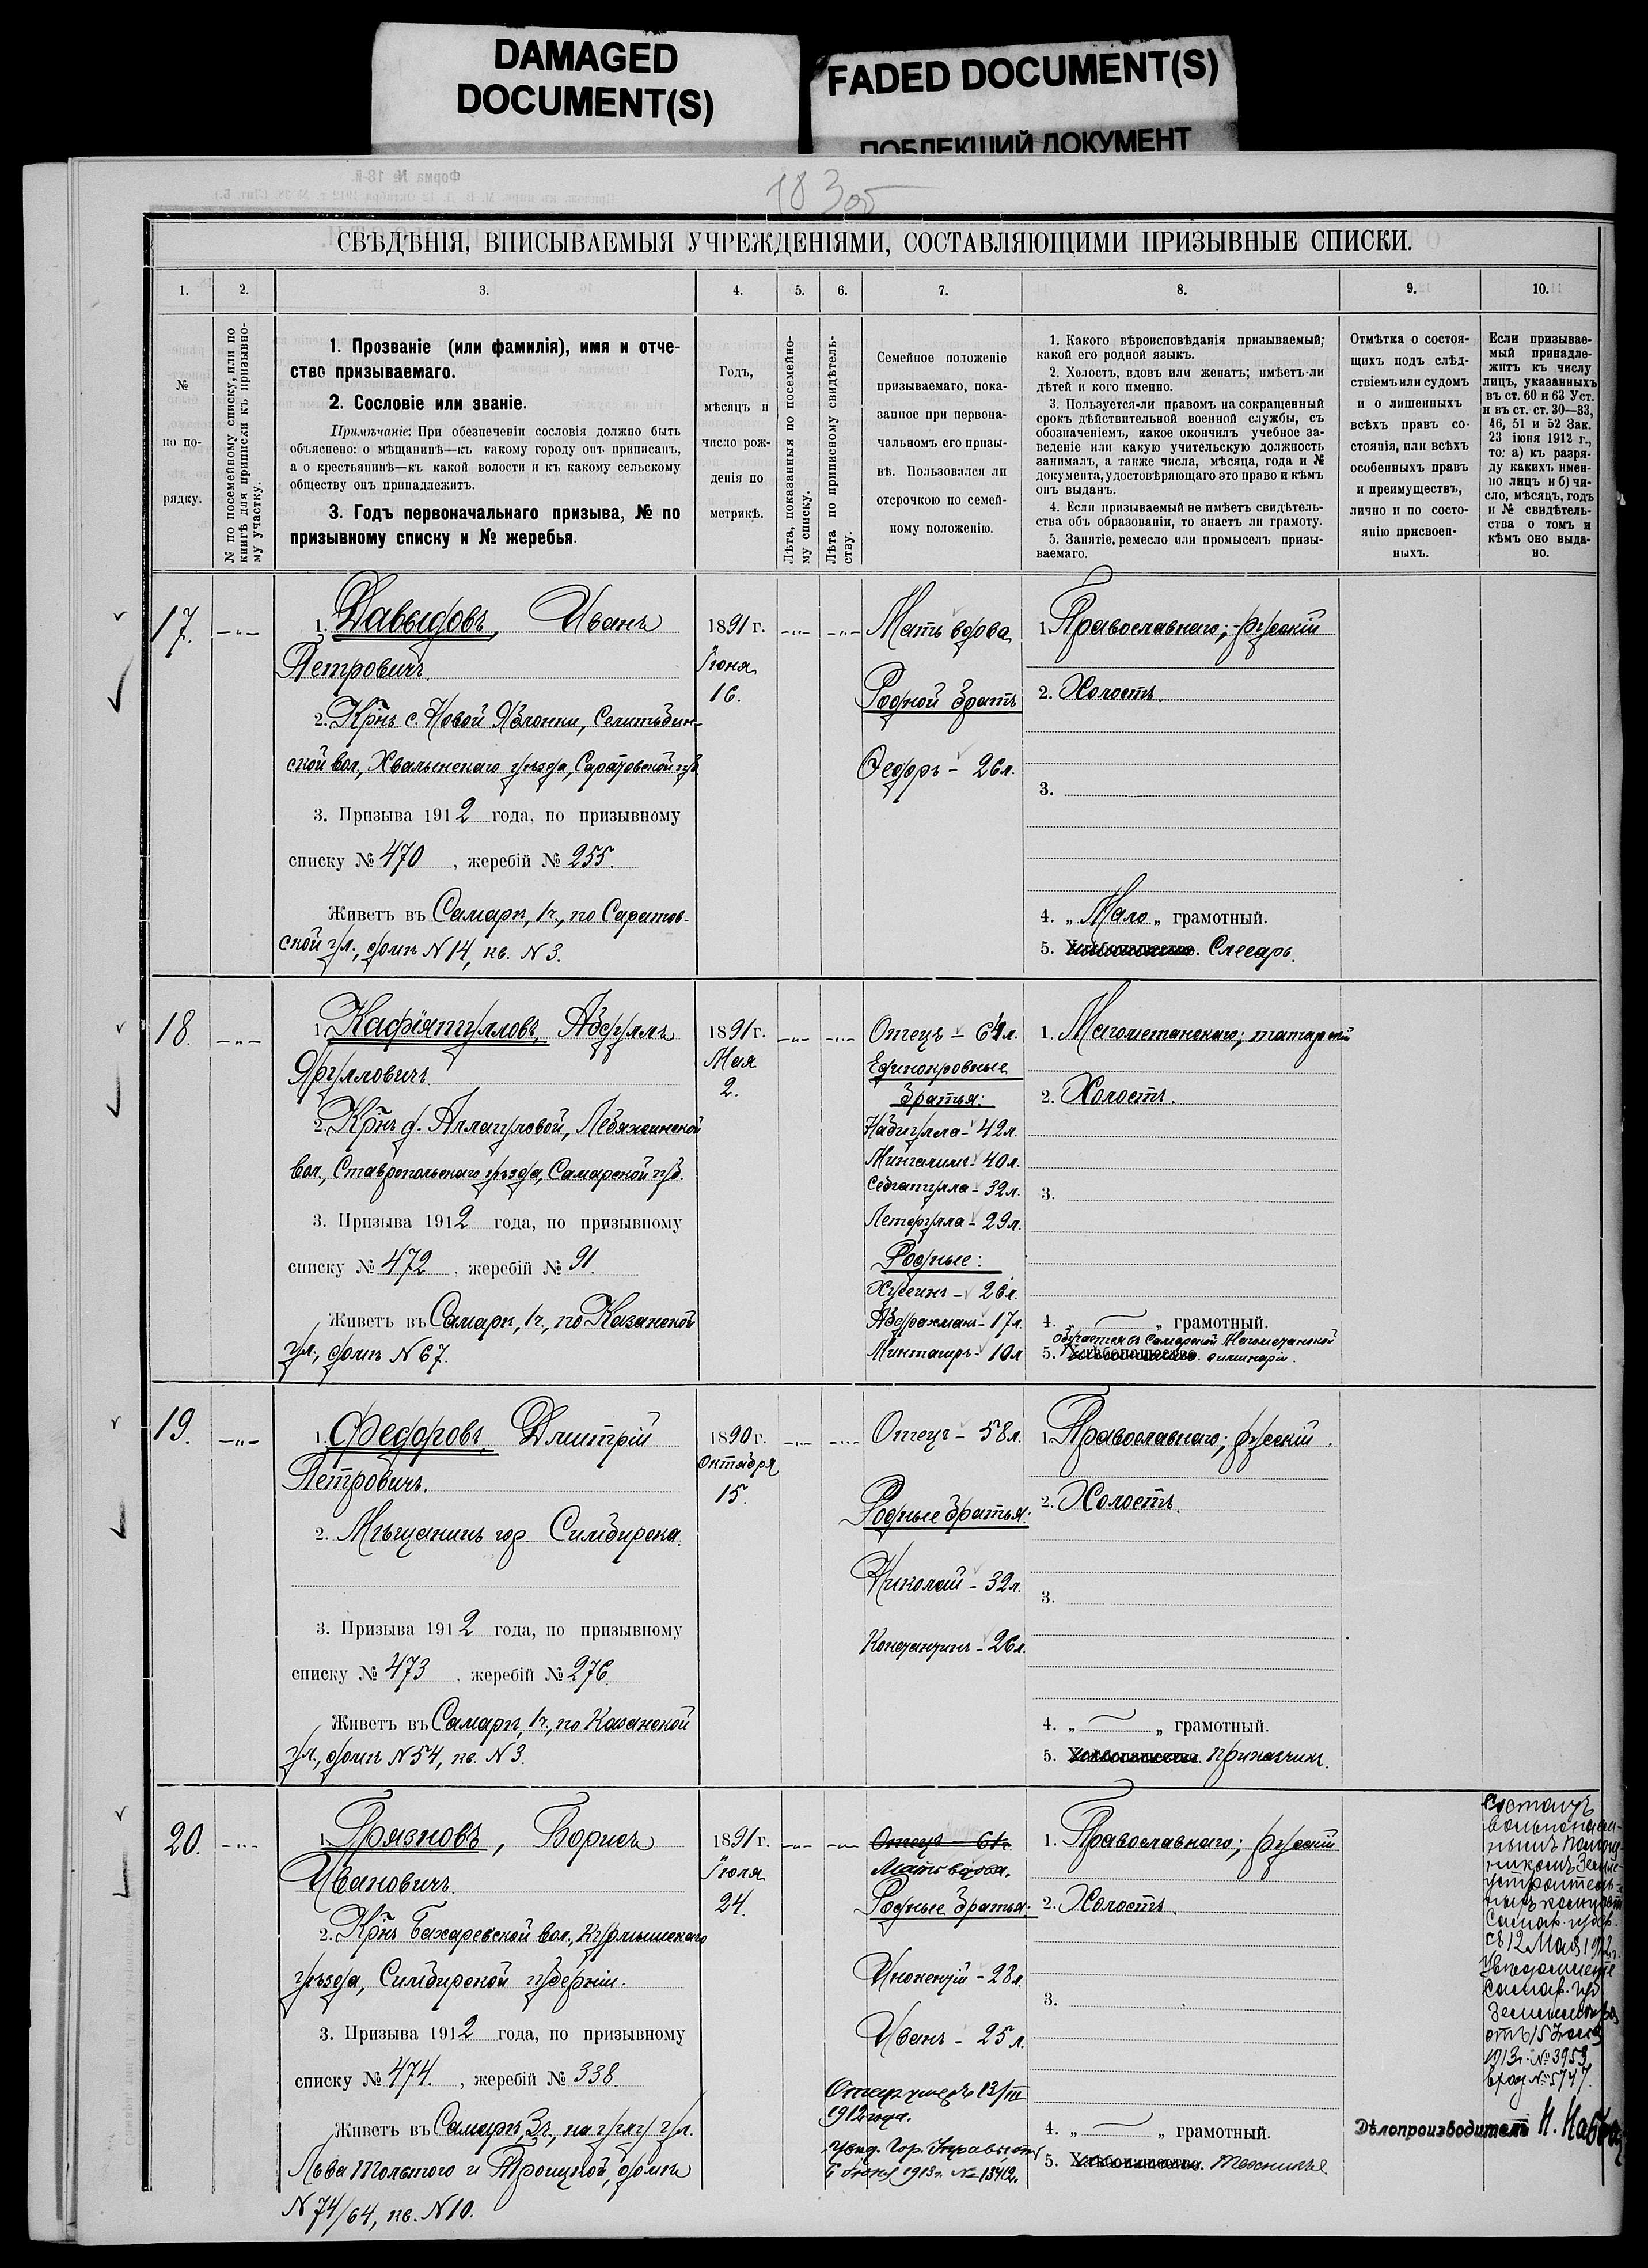 DAMAGED
DOCUMENT(S)
FADED DOCUMENT(S)
ПОБЛЕКШИЙ ДОКУМЕНТ
183об
СВѢДѢНІЯ, ВПИСЫВАЕМЫЯ УЧРЕЖДЕНІЯМИ, СОСТАВЛЯЮЩИМИ ПРИЗЫВНЫЕ СПИСКИ.
1.
2.
3.
4.
5.
6.
7.
8.
9.
10.
№
по по-
рядку.
№ по посемейному списку, или по
книгѣ для приписки къ призывно-
му участку.
1. Прозваніе (или фамилія), имя и отче-
ство призываемаго.
2. Сословіе или званіе.
Примѣчаніе: При обезпеченіи сословія должно быть
объяснено: о мѣщанинѣ—къ какому городу онъ приписанъ,
а о крестьянинѣ—къ какой волости и къ какому сельскому
обществу онъ принадлежитъ.
3. Годъ первоначальнаго призыва, № по
призывному списку и № жеребья.
Годъ,
мѣсяцъ и
число рож-
денія по
метрикѣ.
Лѣта, показанныя по посемейно-
му списку.
Лѣта по приписному свидѣтель-
ству.
Семейное положеніе
призываемаго, пока-
занное при первона-
чальномъ его призы-
вѣ. Пользовался ли
отсрочкою по семей-
ному положенію.
1. Какого вѣроисповѣданія призываемый;
какой его родной языкъ.
2. Холостъ, вдовъ или женатъ; имѣетъ-ли
дѣтей и кого именно.
3. Пользуется-ли правомъ на сокращенный
срокъ дѣйствительной военной службы, съ
обозначеніемъ, какое окончилъ учебное за-
веденіе или какую учительскую должность
занималъ, а также числа, мѣсяца, года и №
документа, удостовѣряющаго это право и кѣмъ
онъ выданъ.
4. Если призываемый не имѣетъ свидѣтель-
ства объ образованіи, то знаетъ ли грамоту.
5. Занятіе, ремесло или промыселъ призы-
ваемаго.
Отмѣтка о состоя-
щихъ подъ слѣд-
ствіемъ или судомъ
и о лишенныхъ
всѣхъ правъ со-
стоянія, или всѣхъ
особенныхъ правъ
и преимуществъ,
лично и по состо-
янію присвоен-
ныхъ.
Если призывае-
мый принадле-
житъ къ числу
лицъ, указанныхъ
въ ст. 60 и 63 Уст.
и въ ст. ст. 30—33,
46, 51 и 52 Зак.
23 іюня 1912 г.,
то: а) къ разря-
ду какихъ имен-
но лицъ и б) чи-
сло, мѣсяцъ, годъ
и № свидѣтель-
ства о томъ и
кѣмъ оно выда-
но.
17.
1. Давыдовъ, Иванъ
Петровичъ.
2. Крнъ с. Новой Яблонки, Селитьбин-
ской вол., Хвалынскаго уѣзда, Саратовской губ
3. Призыва 1912 года, по призывному
списку № 470, жеребій № 255.
Живетъ въ Самарѣ, 1ч., по Саратов-
ской ул., домъ N 14, кв. N 3.
1891 г.
Іюня
16.
Мать вдова
Родной братъ
Федоръ – 26 л.
1. Православнаго; русскій
2. Холостъ.
3.
4. „ Мало „ грамотный.
5. Хлѣбопашество. Слесарь.
18.
1. Кафіятулловъ, Абдулъ
Ядулловичъ.
2. Крнъ д. Аллагуловой, Лебяжинской
вол., Ставропольскаго уѣзда, Самарской губ.
3. Призыва 1912 года, по призывному
списку № 472, жеребій № 91.
Живетъ въ Самарѣ, 1ч., по Казанской
ул., домъ N 67.
1891 г.
Мая
2.
Отецъ – 64 л.
Единокровные
братья:
Набиулла – 42 л.
Мингалимъ – 40 л.
Сибгатулла – 32 л.
Летфулла – 29 л.
Родные:
Хусеинъ – 26 л.
Абдрахманъ – 17 л.
Минтагиръ – 10 л
1. Магометанскаго; татарскій
2. Холостъ.
3.
4. „ „ грамотный.
Обучается въ Самарской Магометанской
5. Хлѣбопашество. симинаріи.
19.
1. Федоровъ, Дмитрій
Петровичъ.
2. Мѣщанинъ гор. Симбирска.
3. Призыва 1912 года, по призывному
списку № 473, жеребій № 276.
Живетъ въ Самарѣ, 1ч., по Казанской
ул., домъ N 54, кв. N 3.
1890 г.
Октября
15.
Отецъ – 58 л.
Родные братья:
Николай – 32 л.
Константинъ – 26 л.
1. Православнаго; русскій.
2. Холостъ.
3.
4. „ „ грамотный.
5. Хлѣбопашество. Приказчикъ.
20.
1. Грязновъ, Борисъ
Ивановичъ.
2. Крнъ Бахаревской вол., Курмышскаго
уѣзда, Симбирской губерніи.
3. Призыва 1912 года, по призывному
списку № 474., жеребій № 338.
Живетъ въ Самарѣ, 3ч., на углу ул.
Льва Толстого и Троицкой, домъ
N 74/64, кв. N 10.
1891 г.
Іюля
24.
Отецъ – 61 л.
Мать вдова.
Родные братья:
Инокентій – 28 л.
Иванъ – 25 л.
Отецъ умеръ 13/III
1912 года.
увед. Гор. Управы отъ
6 Іюня 1913 г. № 13412.
1. Православнаго; русскій
2. Холостъ.
3.
4. „ „ грамотный.
5. Хлѣбопашество. Техникъ
Состоитъ
вольнонаем-
нымъ помощ-
никомъ Земле-
устроитель-
ныхъ
Самар. губ.
съ 12 Мая 1912 г.
Увѣдомленіе
Самар. губ
Землемѣра
отъ 15
1913 г. № 3953
вход № 5747.
Дѣлопроизводитель Н.